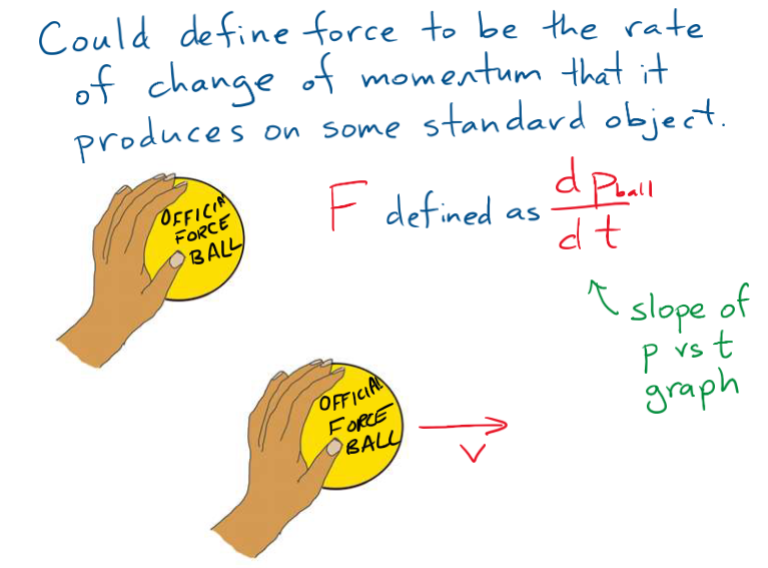 Could define force to be the rate
of change of momentum that it
produces on some standard object.
OFFICIAL
FORCE
BALL
F defined as dp_ball
dt
slope of
p vs t
graph
OFFICIAL
FORCE
BALL
v